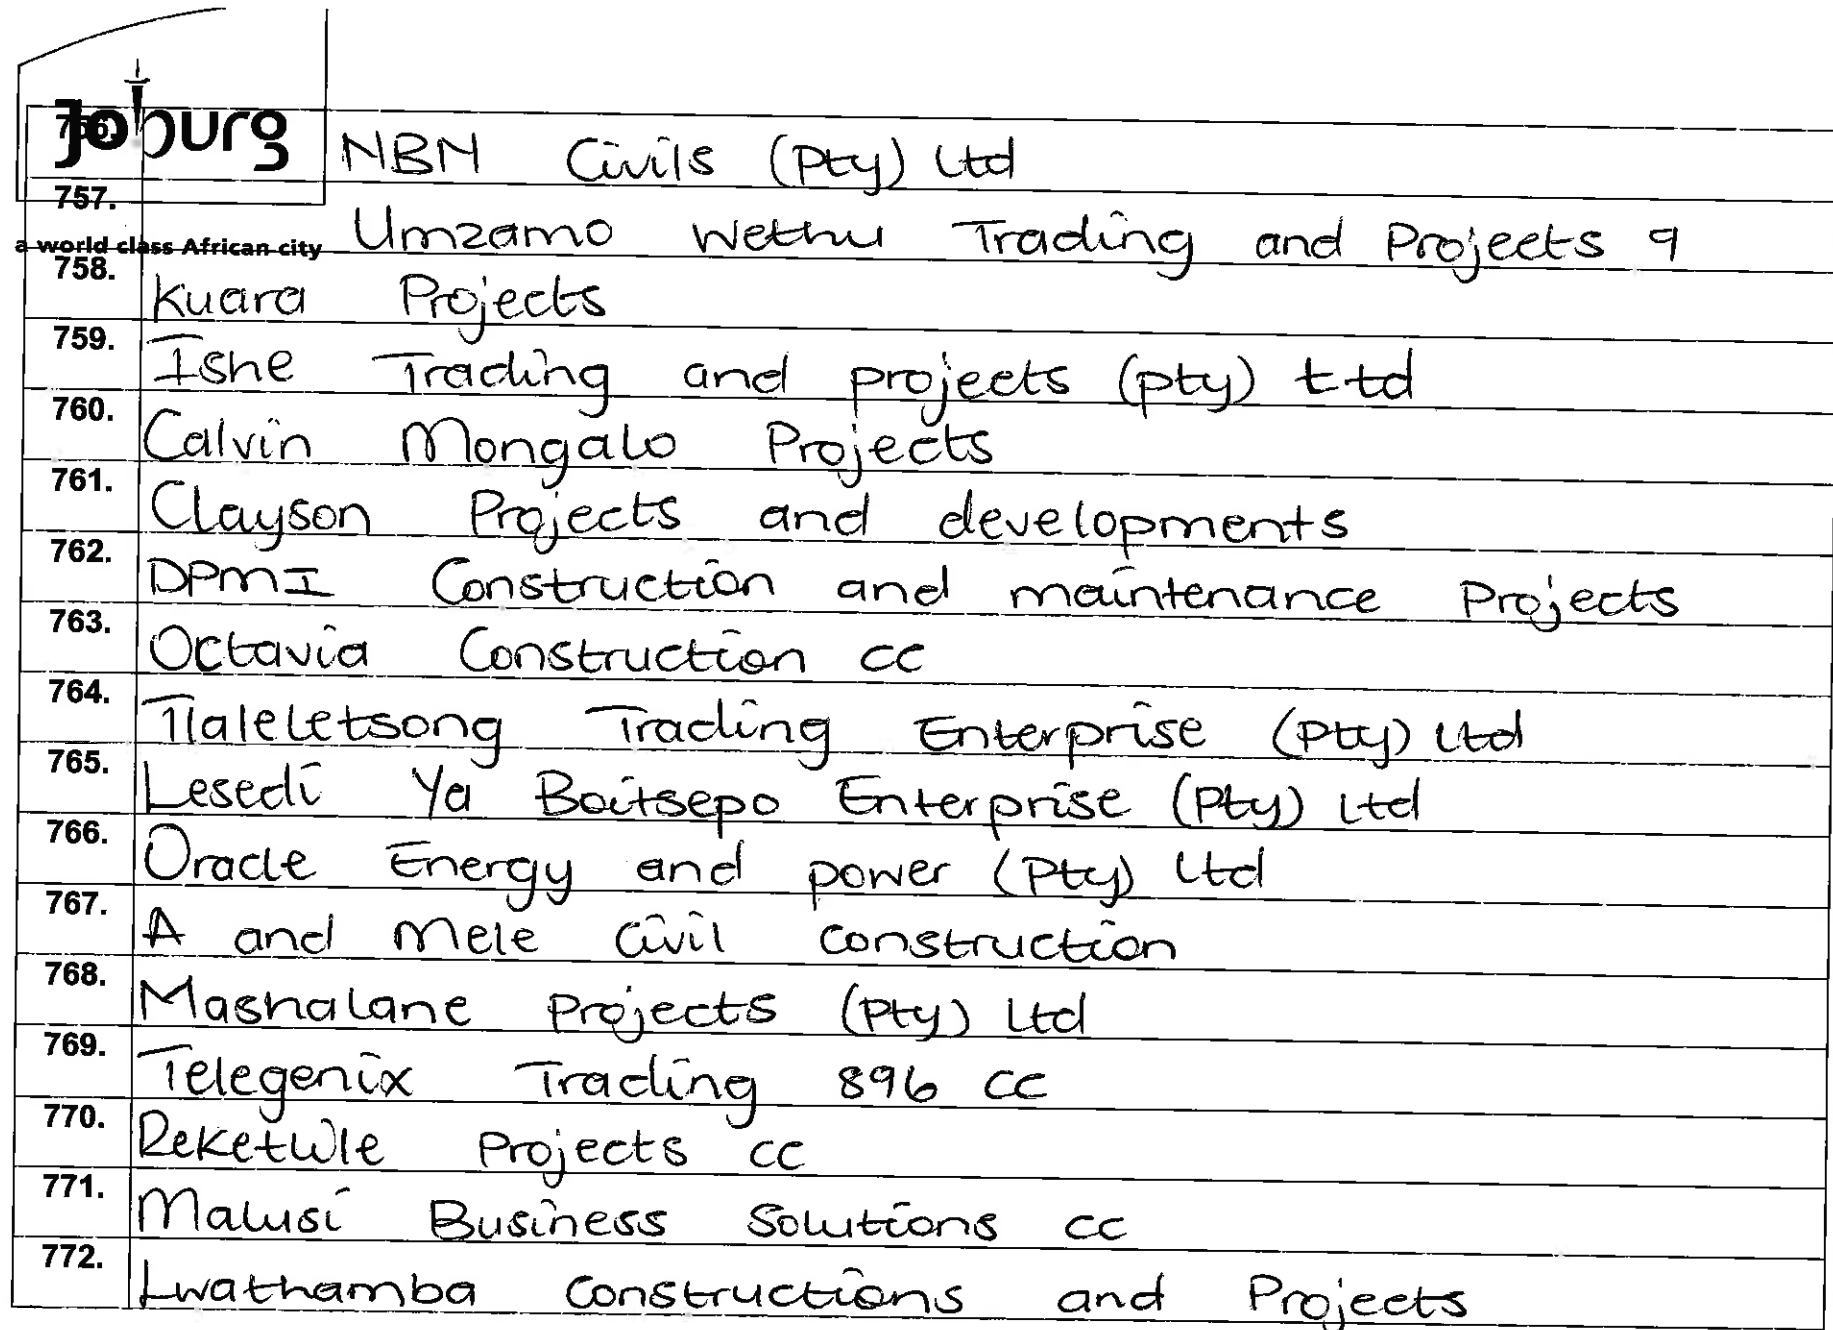 Joburg
756. NBM Civils (Pty) Ltd
757. Umzamo Wethu Trading and Projects 9
a world class African city
758. Kuara Projects
759. Ishe Trading and projects (pty) Ltd
760. Calvin Mongalo Projects
761. Clayson Projects and developments
762. DPMI Construction and maintenance Projects
763. Octavia Construction cc
764. Tlaleletsong Trading Enterprise (Pty) Ltd
765. Lesedi Ya Boitsepo Enterprise (Pty) Ltd
766. Oracle Energy and power (Pty) Ltd
767. A and Mele Civil construction
768. Mashalane Projects (Pty) Ltd
769. Telegenix Trading 896 cc
770. Reketwle Projects cc
771. Malusi Business Solutions cc
772. Lwathamba Constructions and Projects